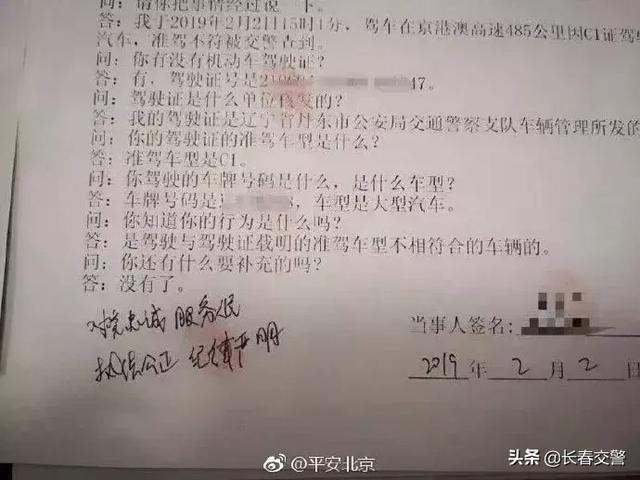 问：请你把事情经过说一下。
答：我于2019年2月2日15时1分，驾车在京港澳高速485公里因C1证驾驶
汽车，准驾不符被交警查到。
问：你有没有机动车驾驶证？
答：有，驾驶证号是2 47。
问：驾驶证是什么单位核发的？
答：我的驾驶证是辽宁省丹东市公安局交通警察支队车辆管理所发的
问：你的驾驶证的准驾车型是什么？
答：准驾车型是C1。
问：你驾驶的车牌号码是什么，是什么车型？
答：车牌号码是 8，车型是大型汽车。
问：你知道你的行为是什么吗？
答：是驾驶与驾驶证载明的准驾车型不相符合的车辆的。
问：你还有什么要补充的吗？
答：没有了。
对党忠诚 服务人民
执法公正 纪律严明
当事人签名：
2019 年 2 月 2 日
@平安北京
头条 @长春交警